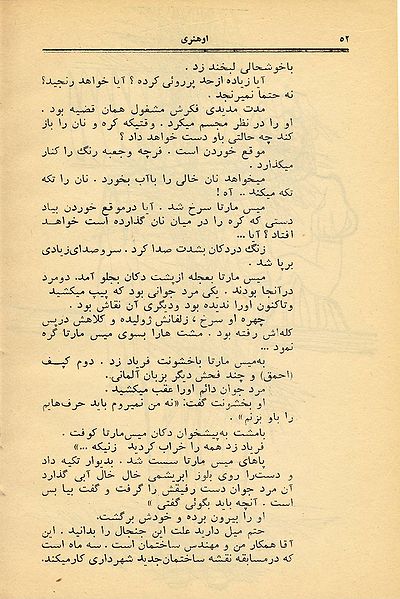 ۵۲
اوهنری
باخوشحالی لبخند زد .
آیا زیاده ازحد پرروئی کرده ؟ آیا خواهد رنجید؟
نه حتماً نمیرنجد .
مدت مدیدی فکرش مشغول همان قضیه بود .
او را در نظر مجسم میکرد . وقتیکه کره و نان را باز
کند چه حالتی باو دست خواهد داد ؟
موقع خوردن است . فرچه وجعبه رنگ را کنار
میگذارد .
میخواهد نان خالی را باآب بخورد . نان را تکه
تکه میکند .. آه !
میس مارتا سرخ شد . آیا درموقع خوردن بیاد
دستی که کره را در میان نان گذارده است خواهد
افتاد ؟ آیا ...
زنگ دردکان بشدت صدا کرد . سروصدای‌زیادی
برپا شد .
میس مارتا بعجله ازپشت دکان بجلو آمد. دومرد
درآنجا بودند . یکی مرد جوانی بود که پیپ میکشید
وتاکنون اورا ندیده بود ودیگری آن نقاش بود .
چهره او سرخ ، زلفانش ژولیده و کلاهش درپس
کله‌اش رفته بود . مشت هارا بسوی میس مارتا گره
نمود ...
به‌میس مارتا باخشونت فریاد زد . دوم کپف
(احمق) و چند فحش دیگر بزبان آلمانی.
مرد جوان دائم اورا عقب میکشید .
او بخشونت گفت: «نه من نمیروم باید حرف‌هایم
را باو بزنم» .
بامشت به‌پیشخوان دکان میس‌مارتا کوفت .
فریاد زد همه را خراب کردید زنیکه ...»
پاهای میس مارتا سست شد . بدیوار تکیه داد
و دست‌را روی بلوز ابریشمی خال خال آبی گذارد
آن مرد جوان دست رفیقش را گرفت و گفت بیا بس
است . آنچه باید بگوئی گفتی »
او را بیرون برده و خودش برگشت.
حتم میل دارید علت این جنجال را بدانید . این
آقا همکار من و مهندس ساختمان است . سه ماه است
که درمسابقه نقشه ساختمان‌جدید شهرداری کارمیکند.